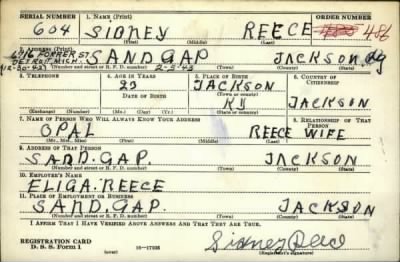 SERIAL NUMBER 1. NAME (Print) ORDER NUMBER
604 SIDNEY REECE 486
(First) (Middle) (Last)
2. ADDRESS (Print)
FORRER ST
DETROIT. MICH. SAND GAP JACKSON Ky
(12-30-42) (Number and street or R. F. D. number) 2-3-43 (Town) (County) (State)
3. TELEPHONE 4. AGE IN YEARS 5. PLACE OF BIRTH 6. COUNTRY OF CITIZENSHIP
JACKSON
DATE OF BIRTH (Town or county)
KY JACKSON
(Exchange) (Number) (Mo.) (Day) (Yr.) (State or country)
7. NAME OF PERSON WHO WILL ALWAYS KNOW YOUR ADDRESS 8. RELATIONSHIP OF THAT PERSON
OPAL REECE WIFE
(Mr., Mrs., Miss) (First) (Middle) (Last)
9. ADDRESS OF THAT PERSON
SAND. GAP. JACKSON
(Number and street or R. F. D. number) (Town) (County) (State)
10. EMPLOYER'S NAME
ELIGA. REECE
11. PLACE OF EMPLOYMENT OR BUSINESS
SAND. GAP. JACKSON
(Number and street or R. F. D. number) (Town) (County) (State)
I AFFIRM THAT I HAVE VERIFIED ABOVE ANSWERS AND THAT THEY ARE TRUE.
REGISTRATION CARD
D. S. S. Form 1 (over) 16-17105 Sidney Reece
(Registrant's signature)